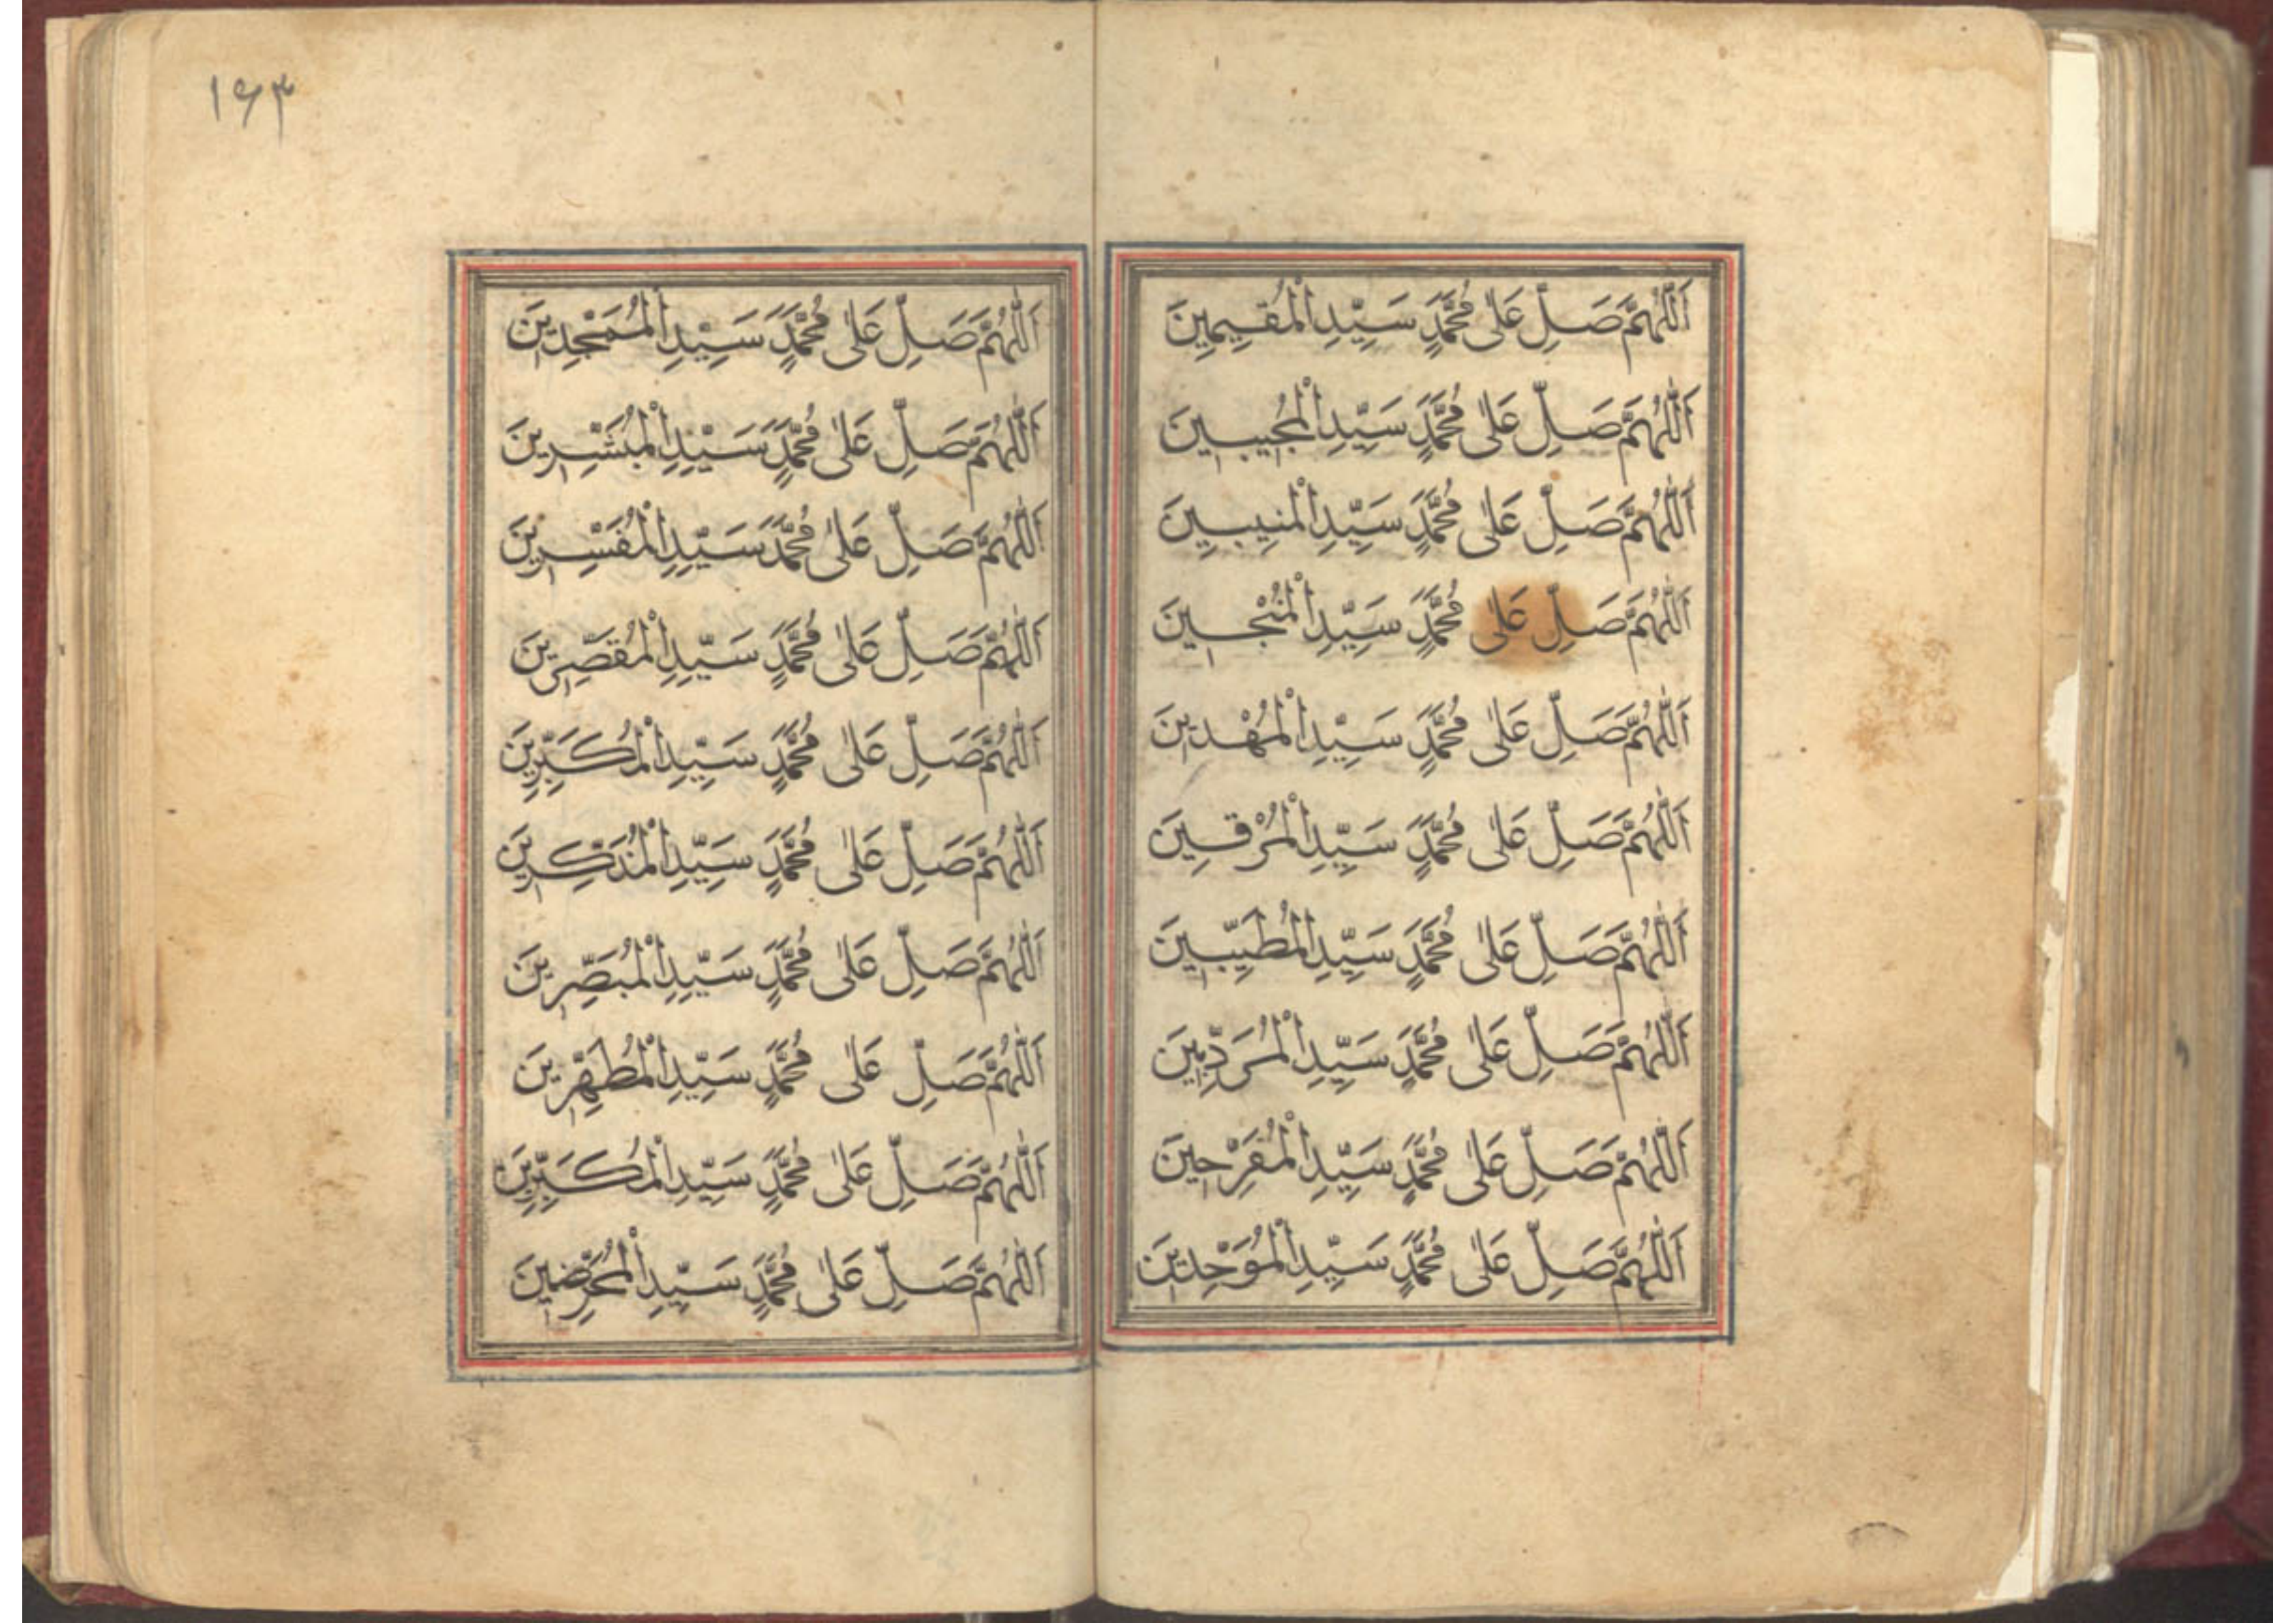 اَللّٰهُمَّ صَلِّ عَلٰى مُحَمَّدٍ سَيِّدِ الْمُقِيمِينَ
اَللّٰهُمَّ صَلِّ عَلٰى مُحَمَّدٍ سَيِّدِ الْمُجِيبِينَ
اَللّٰهُمَّ صَلِّ عَلٰى مُحَمَّدٍ سَيِّدِ الْمُنِيبِينَ
اَللّٰهُمَّ صَلِّ عَلٰى مُحَمَّدٍ سَيِّدِ الْمُنْجِينَ
اَللّٰهُمَّ صَلِّ عَلٰى مُحَمَّدٍ سَيِّدِ الْمُهْدِينَ
اَللّٰهُمَّ صَلِّ عَلٰى مُحَمَّدٍ سَيِّدِ
اَللّٰهُمَّ صَلِّ عَلٰى مُحَمَّدٍ سَيِّدِ الْمُطَيِّبِينَ
اَللّٰهُمَّ صَلِّ عَلٰى مُحَمَّدٍ سَيِّدِ
اَللّٰهُمَّ صَلِّ عَلٰى مُحَمَّدٍ سَيِّدِ الْمُفَرِّحِينَ
اَللّٰهُمَّ صَلِّ عَلٰى مُحَمَّدٍ سَيِّدِ الْمُوَحِّدِينَ
١۶٣
اَللّٰهُمَّ صَلِّ عَلٰى مُحَمَّدٍ سَيِّدِ الْمُمَجِّدِينَ
اَللّٰهُمَّ صَلِّ عَلٰى مُحَمَّدٍ سَيِّدِ الْمُبَشِّرِينَ
اَللّٰهُمَّ صَلِّ عَلٰى مُحَمَّدٍ سَيِّدِ الْمُفَسِّرِينَ
اَللّٰهُمَّ صَلِّ عَلٰى مُحَمَّدٍ سَيِّدِ الْمُقَصِّرِينَ
اَللّٰهُمَّ صَلِّ عَلٰى مُحَمَّدٍ سَيِّدِ الْمُكَبِّرِينَ
اَللّٰهُمَّ صَلِّ عَلٰى مُحَمَّدٍ سَيِّدِ الْمُذَكِّرِينَ
اَللّٰهُمَّ صَلِّ عَلٰى مُحَمَّدٍ سَيِّدِ الْمُبَصِّرِينَ
اَللّٰهُمَّ صَلِّ عَلٰى مُحَمَّدٍ سَيِّدِ الْمُطَهِّرِينَ
اَللّٰهُمَّ صَلِّ عَلٰى مُحَمَّدٍ سَيِّدِ الْمُكَبِّرِينَ
اَللّٰهُمَّ صَلِّ عَلٰى مُحَمَّدٍ سَيِّدِ الْمُحَرِّضِينَ